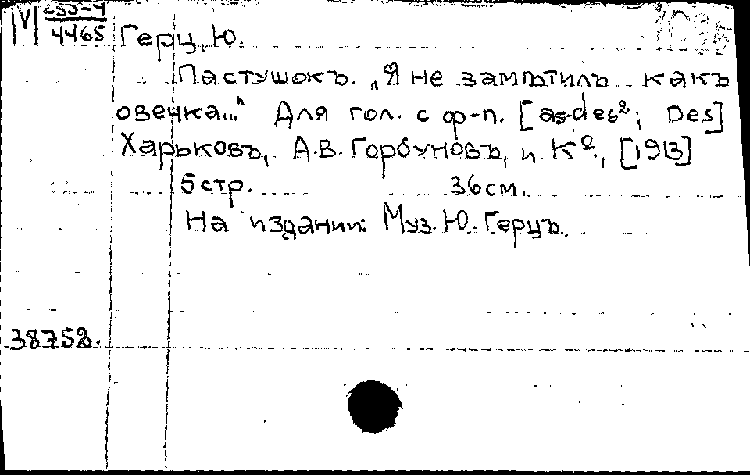 М 4465
Герц, Ю.
Пастушокъ. „Я не замѣтилъ какъ
овечка..." Для гол. с ф-п. [as-des²; Des]
Харьковъ, А.В. Горбуновъ, и К⁰, [1913]
5 стр. 36 см.
На издании: Муз. Ю. Герцъ.
38752.